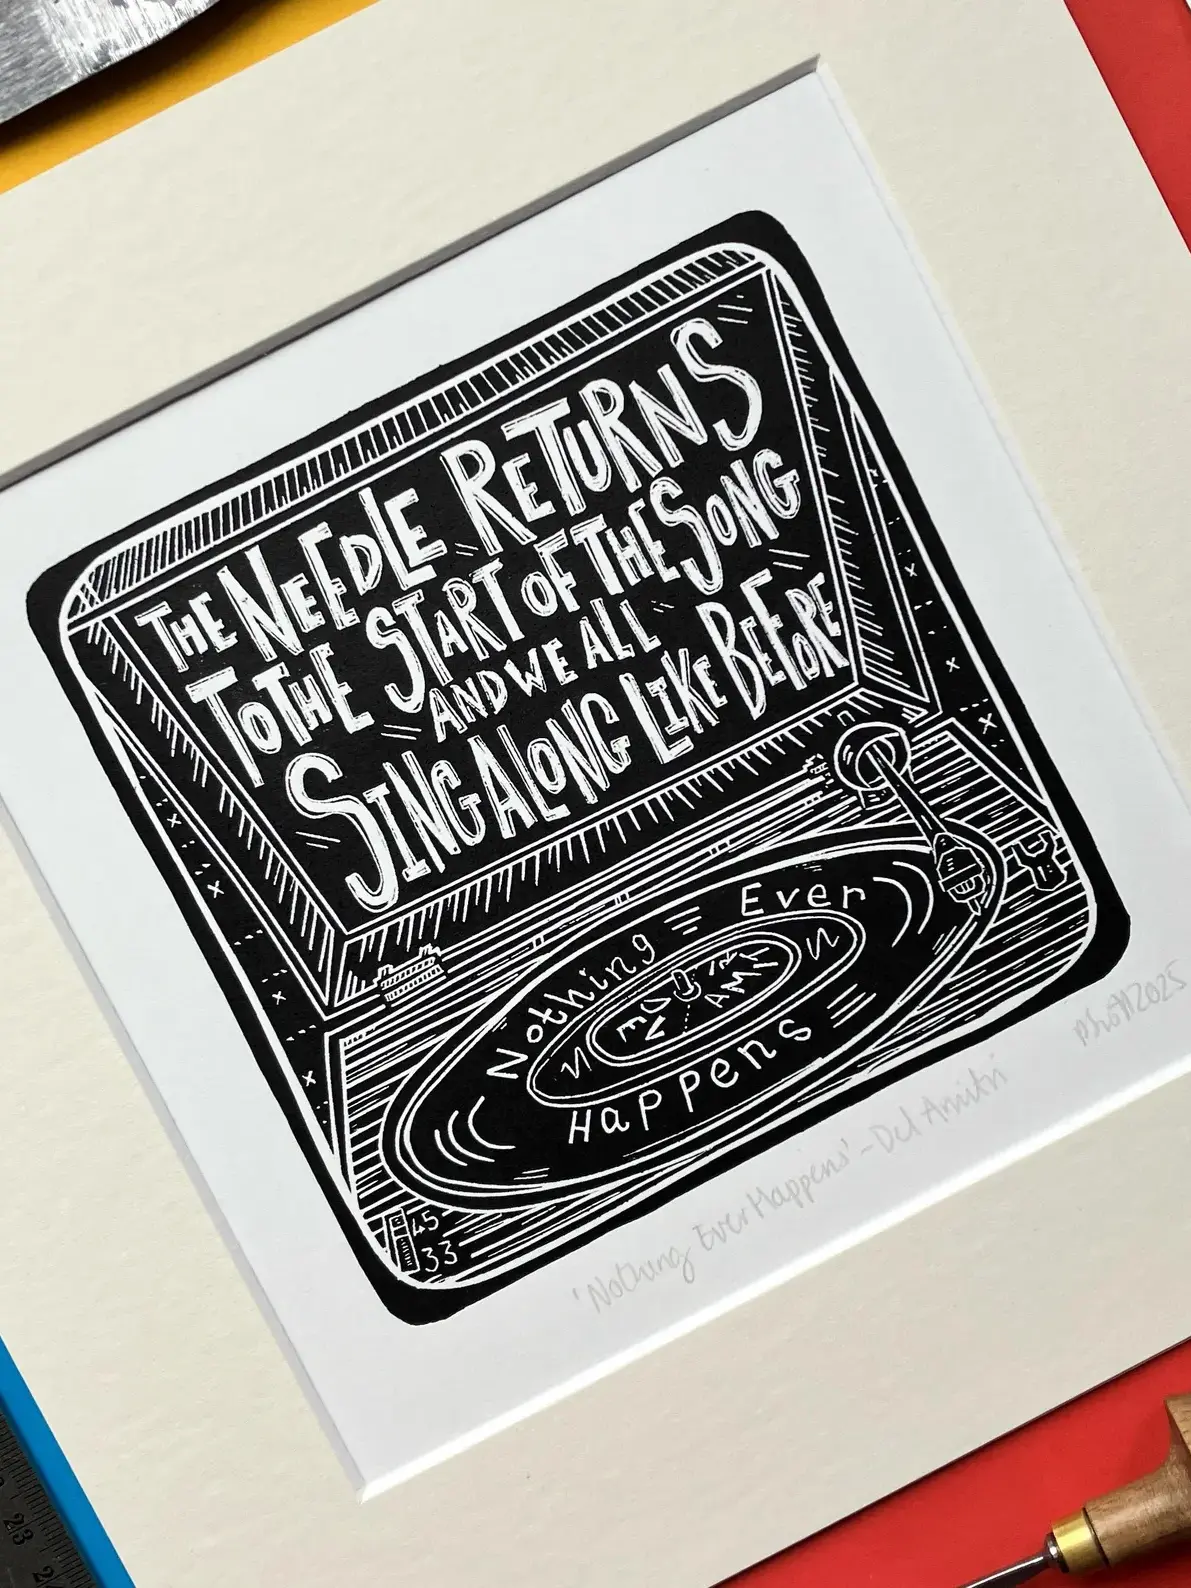 THE NEEDLE RETURNS
TO THE START OF THE SONG
AND WE ALL
SING ALONG LIKE BEFORE
Nothing Ever
Happens
45
33
'Nothing Ever Happens' - Del Amitri
2025
23